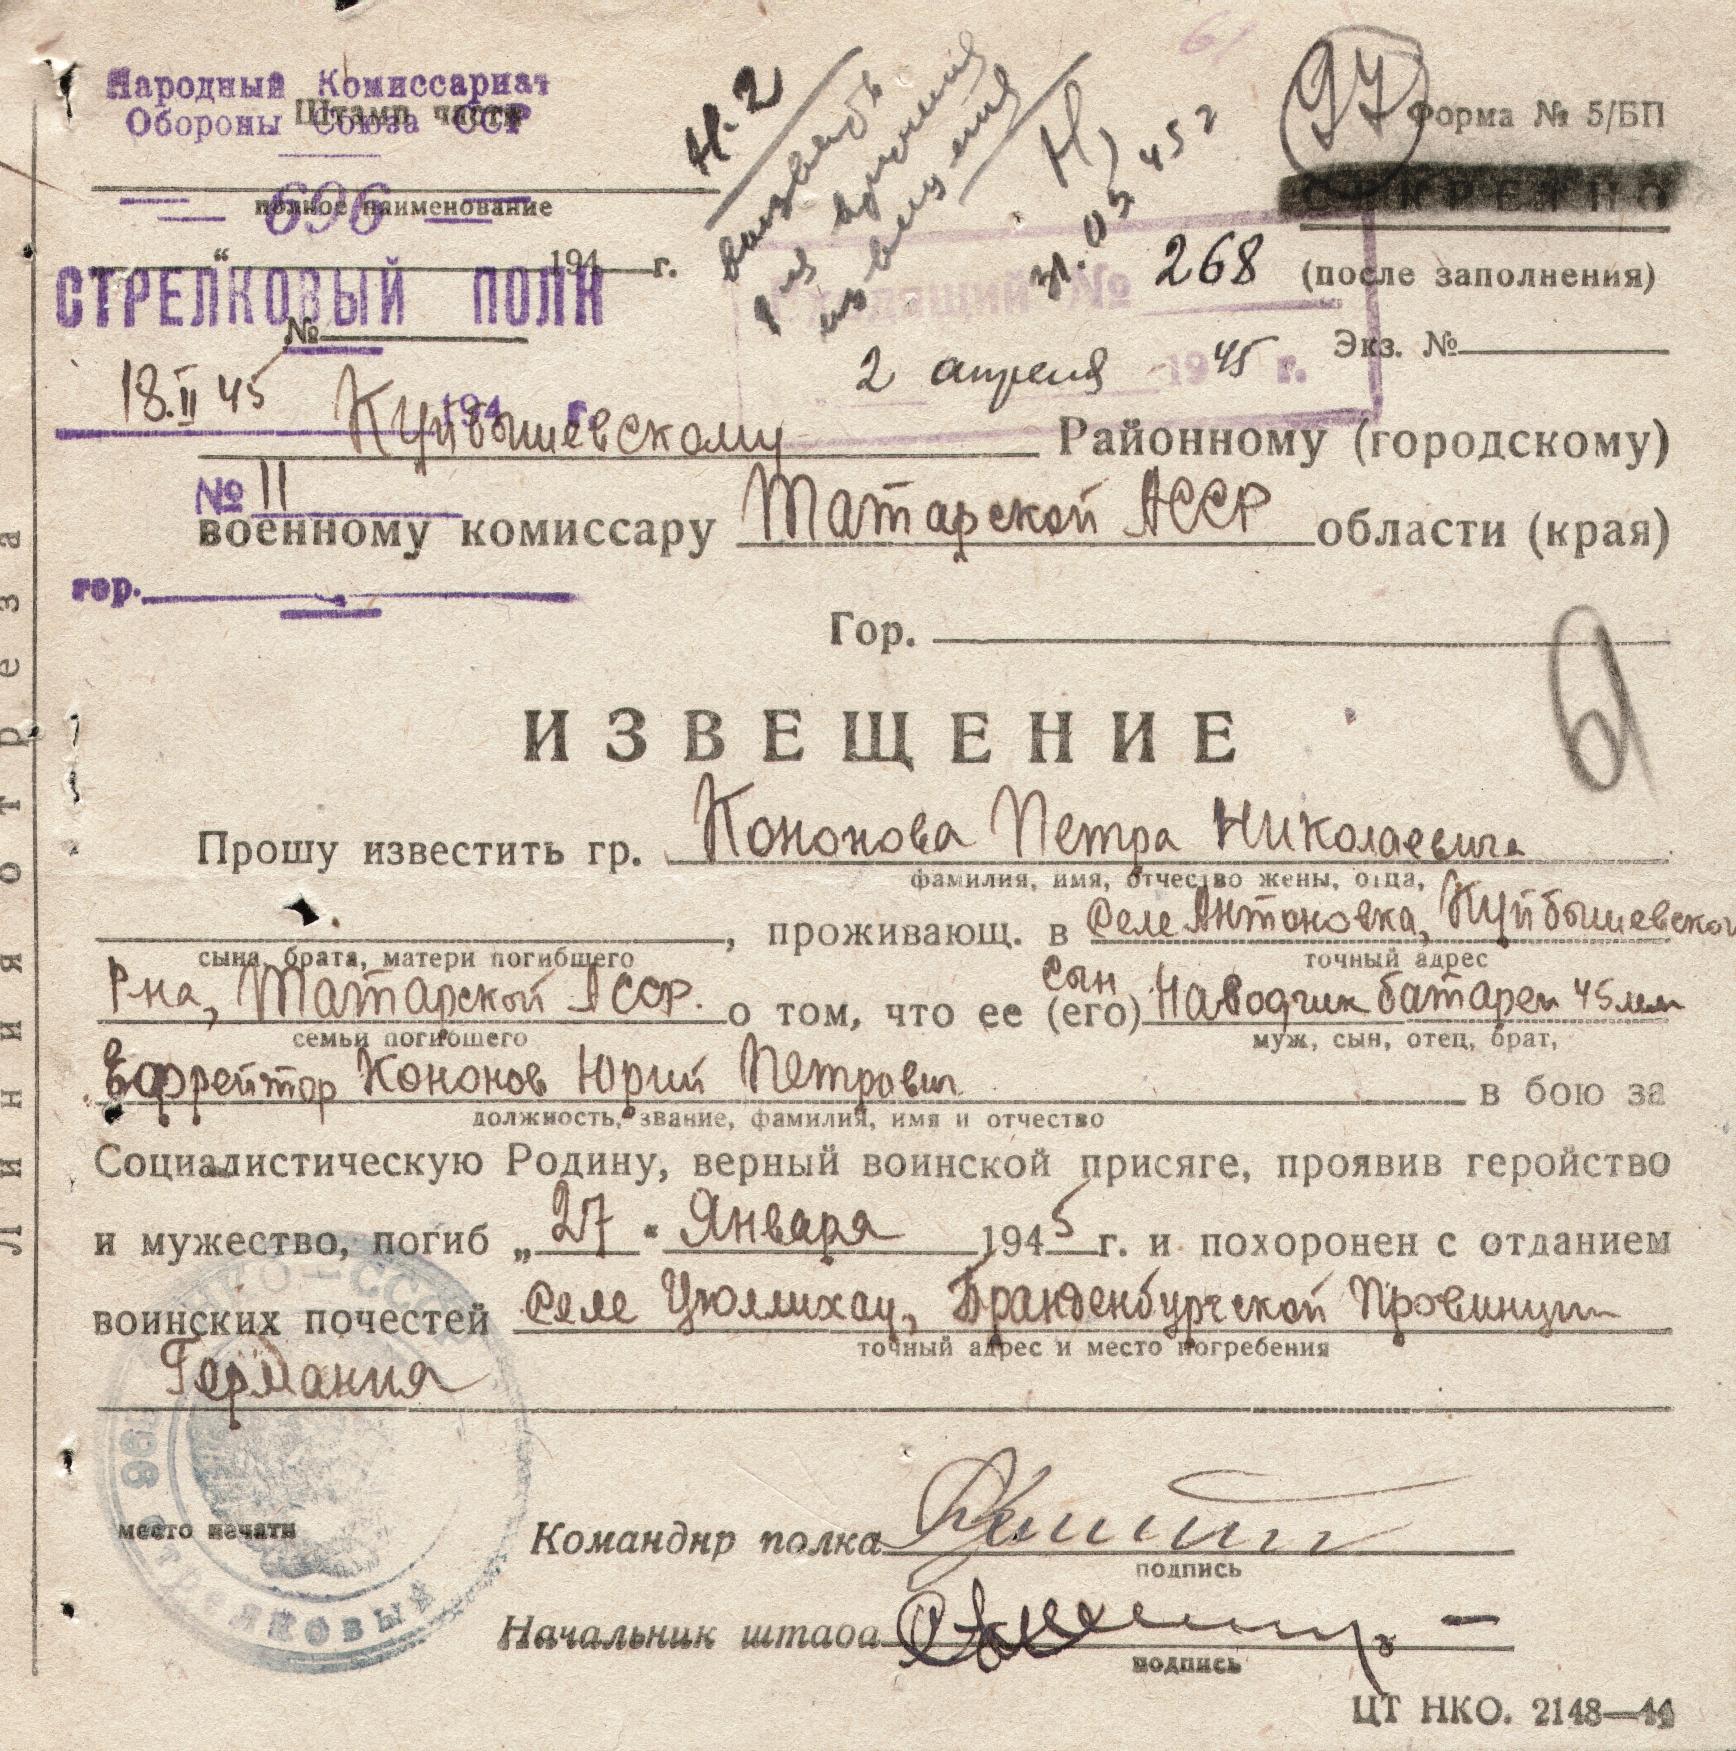 Народный Комиссариат
Обороны Союза ССР
Штамп части
полное наименование
696
"194 г.
СТРЕЛКОВЫЙ ПОЛК
№
18.II 45 194 г.
№ 11
гор.
Н-2
вызвать
для вручения
извещения
31.03.45 г
97
Форма № 5/БП
СЕКРЕТНО
(после заполнения)
Входящий № 268
2 апреля 1945 г.
Экз. №
Куйбышевскому Районному (городскому)
военному комиссару Татарской АССР области (края)
Гор.
ИЗВЕЩЕНИЕ
Прошу известить гр. Кононова Петра Николаевича
фамилия, имя, отчество жены, отца,
, проживающ. в селе Антоновка, Куйбышевског
сына, брата, матери погибшего
точный адрес
Р-на, Татарской АССР. о том, что ее (его) сын Наводчик батареи 45мм
семьи погибшего
муж, сын, отец, брат,
Ефрейтор Кононов Юрий Петрович в бою за
должность, звание, фамилия, имя и отчество
Социалистическую Родину, верный воинской присяге, проявив геройство
и мужество, погиб „27" Января 1945 г. и похоронен с отданием
воинских почестей Селе Цюллихау, Бранденбургской Провинции
точный адрес и место погребения
Германия
НКО—СССР
696
Стрелковый
место печати
Командир полка
подпись
Начальник штаба
подпись
ЦТ НКО. 2148—44
Линия отреза